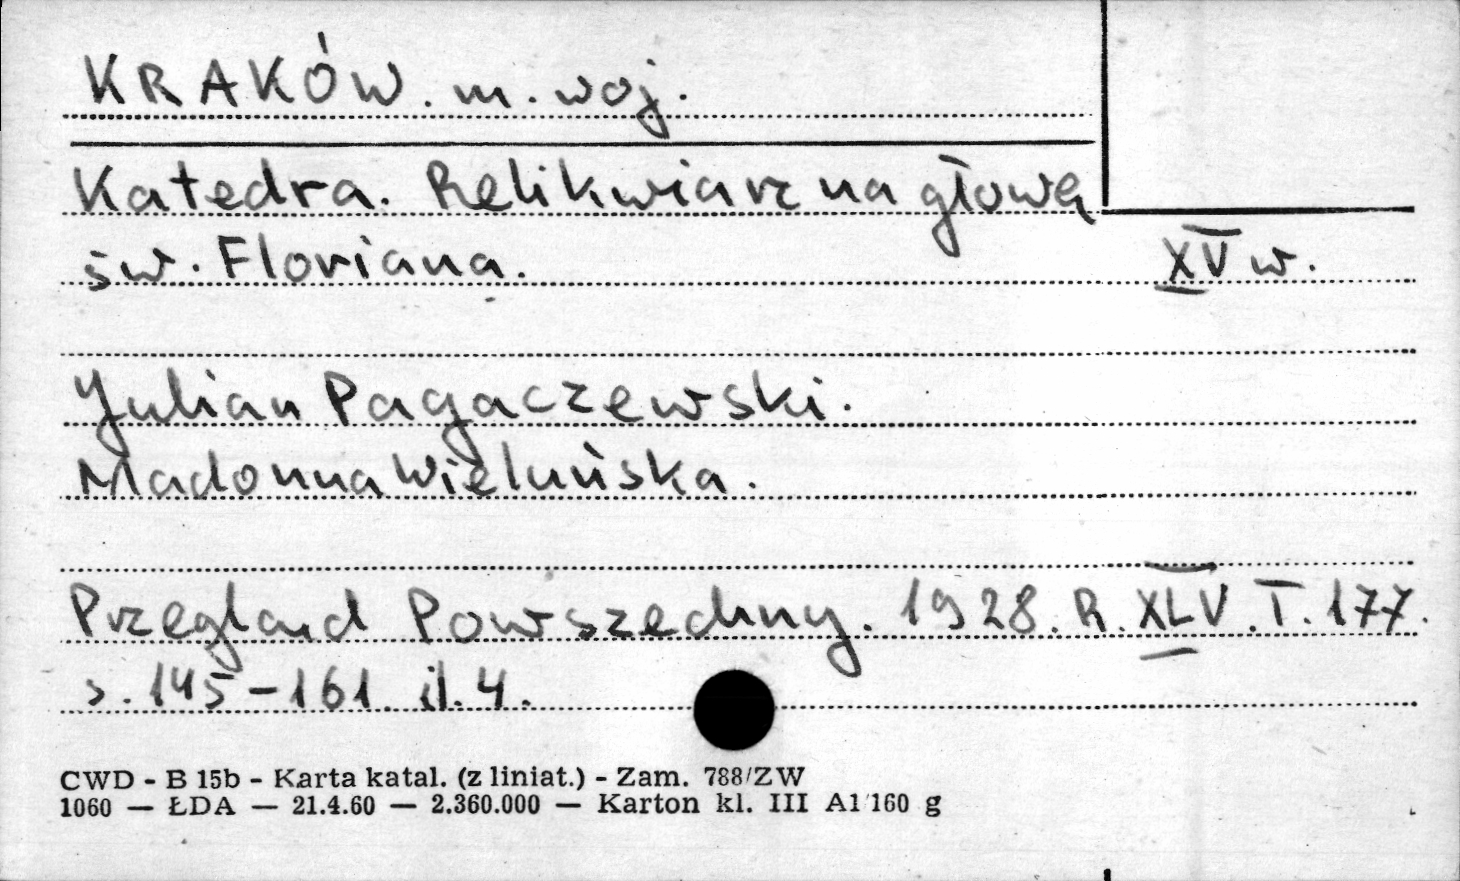 KRAKÓW. m. woj.
Katedra. Relikwiarz na głowę
św. Floriana.
XV w.
Julian Pagaczewski.
Madonna Wieluńska.
Przegląd Powszechny. 1928. R. XLV. T. 177.
s. 145-161. il. 4.
CWD - B 15b - Karta katal. (z liniat.) - Zam. 788/ZW
1060 — ŁDA — 21.4.60 — 2.360.000 — Karton kl. III A1 160 g